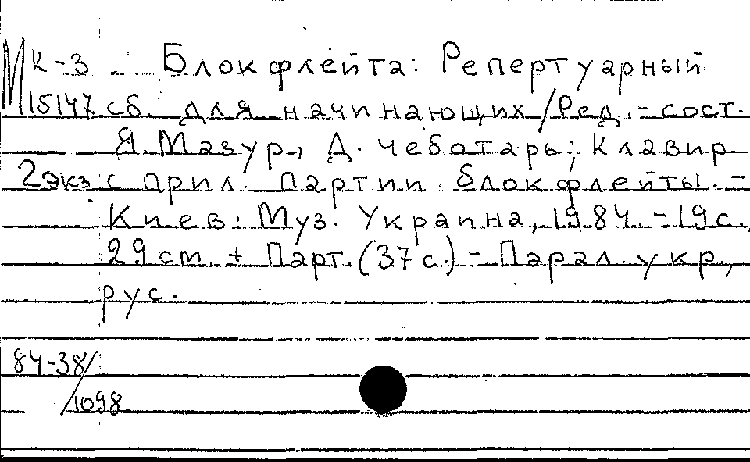 М К-3 Блокфлейта: Репертуарный
15147 сб. для начинающих/Ред.-сост.
Я. Мазур, Д. Чеботарь; Клавир
2экз с прил. партии блокфлейты. -
Киев: Муз. Украпна, 1984. - 19 с.,
29 cm. + Парт. (37 с.) - Парал укр,
рус.
84-38/
/1098